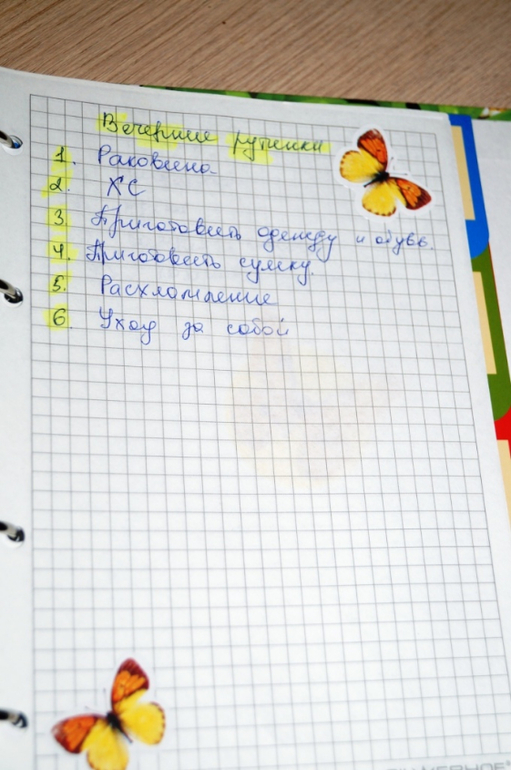 Вечерние рутинки
1. Раковина
2. КС
3. Приготовить одежду и обувь.
4. Приготовить сумку.
5. Расхламление
6. Уход за собой